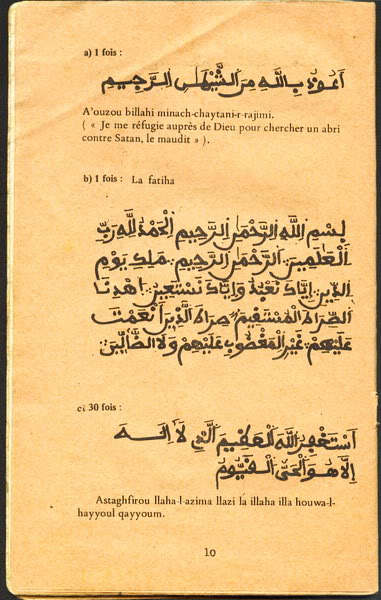 a) 1 fois :
أَعُوذُ بِاللَّهِ مِنَ الشَّيْطَانِ الرَّجِيمِ
A'ouzou billahi minach-chaytani-r-rajimi.
( « Je me réfugie auprès de Dieu pour chercher un abri
contre Satan, le maudit » ).
b) 1 fois : La fatiha
بِسْمِ اللَّهِ الرَّحْمَٰنِ الرَّحِيمِ الْحَمْدُ لِلَّهِ رَبِّ
الْعَٰلَمِينَ الرَّحْمَٰنِ الرَّحِيمِ مَلِكِ يَوْمِ
الدِّينِ إِيَّاكَ نَعْبُدُ وَإِيَّاكَ نَسْتَعِينُ اهْدِنَا
الصِّرَاطَ الْمُسْتَقِيمَ صِرَاطَ الَّذِينَ أَنْعَمْتَ
عَلَيْهِمْ غَيْرِ الْمَغْضُوبِ عَلَيْهِمْ وَلَا الضَّالِّينَ
c) 30 fois :
أَسْتَغْفِرُ اللَّهَ الْعَظِيمَ الَّذِي لَا إِلَٰهَ
إِلَّا هُوَ الْحَيُّ الْقَيُّومُ
Astaghfirou llaha-l-azima llazi la illaha illa houwa-l-
hayyoul qayyoum.
10